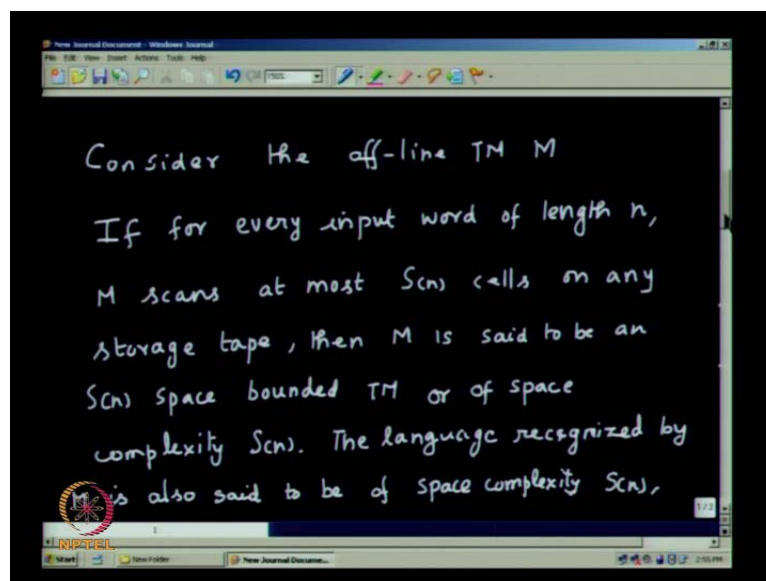 New Journal Document - Windows Journal
File Edit View Insert Actions Tools Help
150%
Consider the off-line TM M
If for every input word of length n,
M scans at most S(n) cells on any
storage tape, then M is said to be an
S(n) space bounded TM or of space
complexity S(n). The language recognized by
is also said to be of space complexity S(n).
1
NPTEL
Start New Folder New Journal Docume... 2:55 PM